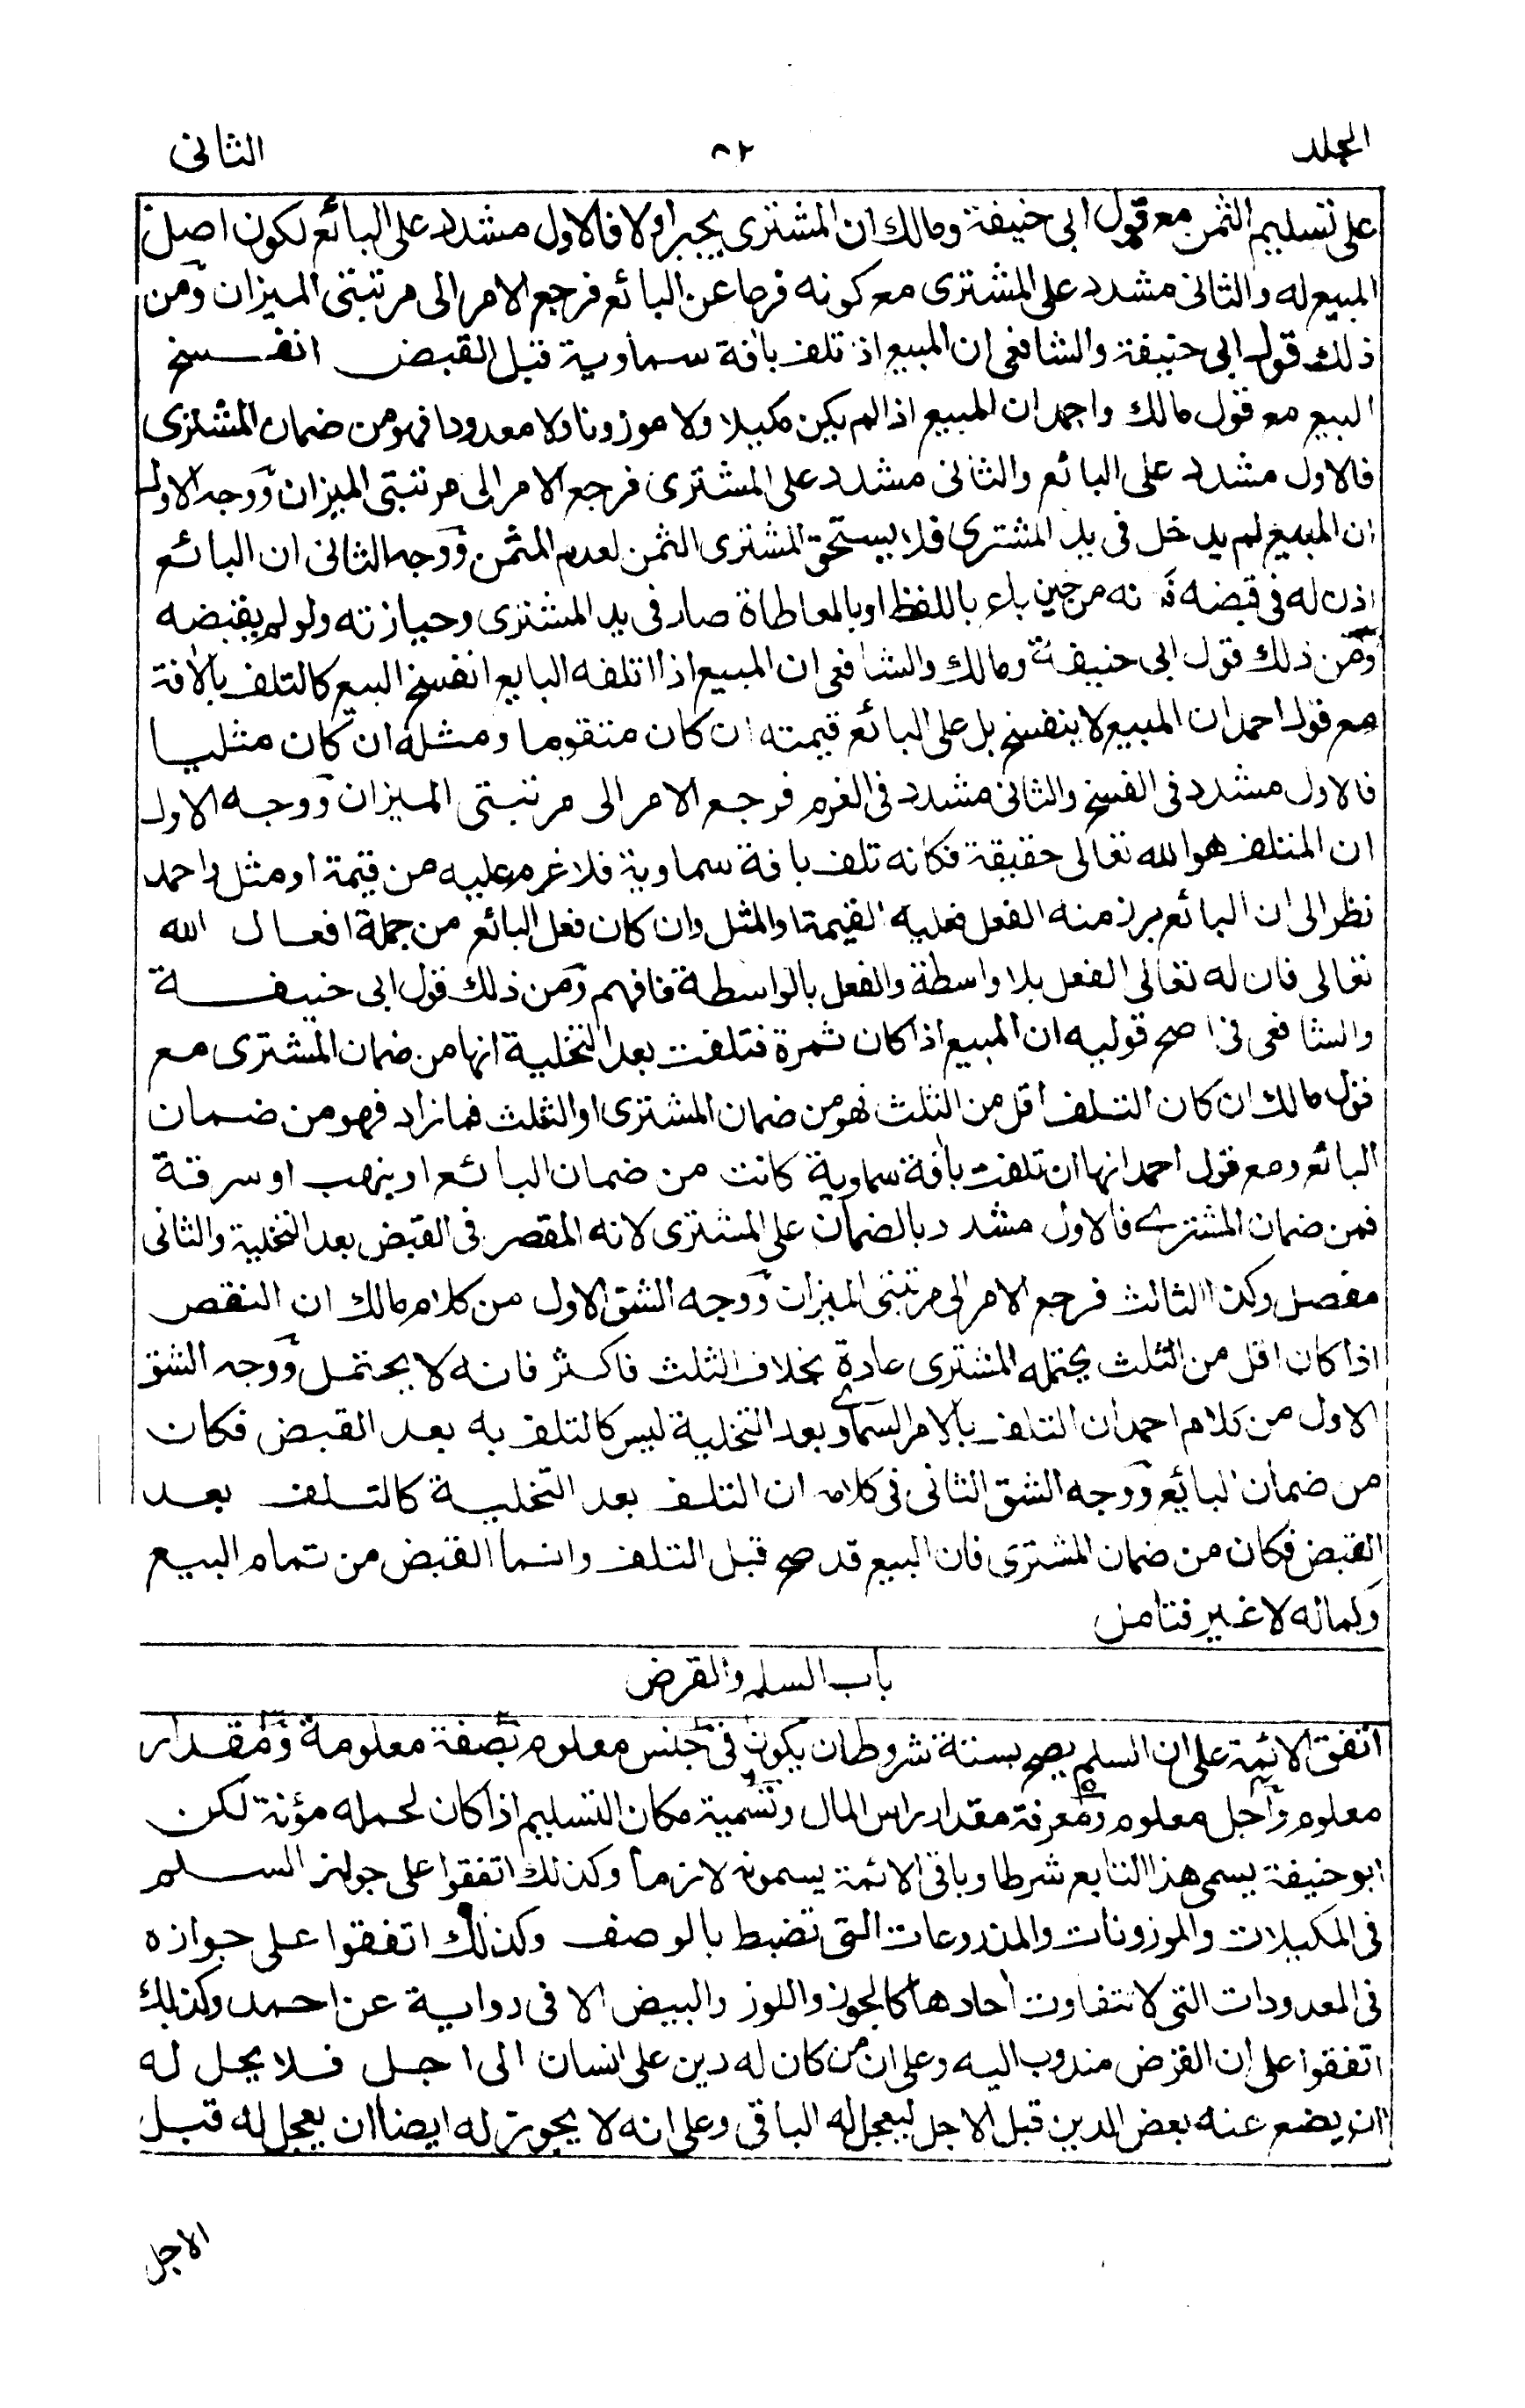 المجلد ٨٢ الثانى
على تسليم الثمن مع قول ابى حنيفة ومالك ان المشترى يجبر اولا فالاول مشدد على البائع لكون اصل
المبيع له والثانى مشدد على المشترى مع كونه فرعا عن البائع فرجع الامر الى مرتبتى الميزان ومن
ذلك قول ابى حنيفة والشافعى ان المبيع اذ تلف بافة سماوية قبل القبض انفسخ
البيع مع قول مالك واحمد ان المبيع اذا لم يكن مكيلا ولا موزونا ولا معدودا فهو من ضمان المشترى
فالاول مشدد على البائع والثانى مشدد على المشترى فرجع الامر الى مرتبتى الميزان ووجه الاول
ان المبيع لم يدخل فى يد المشترى فلا يستحق المشترى الثمن لعدم المثمن ووجه الثانى ان البائع
اذن له فى قبضه من حين باع باللفظ او بالمعاطاة صار فى يد المشترى وحيازته ولو لم يقبضه
ومن ذلك قول ابى حنيفة ومالك والشافعى ان المبيع اذا اتلفه البايع انفسخ البيع كالتلف بالافة
مع قول احمد ان المبيع لا ينفسخ بل على البائع قيمته ان كان متقوما ومثله ان كان مثليا
فالاول مشدد فى الفسخ والثانى مشدد فى الغرم فرجع الامر الى مرتبتى الميزان ووجه الاول
ان المتلف هو الله تعالى حقيقة فكانه تلف بافة سماوية فلا غرم عليه من قيمة او مثل واحمد
نظر الى ان البائع برز منه الفعل فعليه القيمة او المثل وان كان فعل البائع من جملة افعال الله
تعالى فان له تعالى الفعل بلا واسطة والفعل بالواسطة فافهم ومن ذلك قول ابى حنيفة
والشافعى فى اصح قوليه ان المبيع اذا كان ثمرة فتلفت بعد التخلية انها من ضمان المشترى مع
قول مالك ان كان التلف اقل من الثلث فهو من ضمان المشترى او الثلث فما زاد فهو من ضمان
البائع ومع قول احمد انها ان تلفت بافة سماوية كانت من ضمان البائع او بنهب او سرقة
فمن ضمان المشترے فالاول مشدد بالضمان على المشترى لانه المقصر فى القبض بعد التخلية والثانى
مفصل وكذا الثالث فرجع الامر الى مرتبتى الميزان ووجه الشق الاول من كلام مالك ان النقص
اذا كان اقل من الثلث يحتمله المشترى عادة بخلاف الثلث فاكثر فانه لا يحتمل ووجه الشق
الاول من كلام احمد ان التلف بالامر السماوے بعد التخلية ليس كالتلف به بعد القبض فكان
من ضمان البائع ووجه الشق الثانى فى كلامه ان التلف بعد التخلية كالتلف بعد
القبض فكان من ضمان المشترى فان البيع قد صح قبل التلف وانما القبض من تمام البيع
وكماله لا غير فتامل
باب السلم والقرض
اتفق الائمة على ان السلم يصح بستة شروط ان يكون فى جنس معلوم بصفة معلومة ومقدار
معلوم واجل معلوم ومعرفة مقدار راس المال وتسمية مكان التسليم اذا كان لحمله مؤنة لكن
ابو حنيفة يسمى هذا التابع شرطا وباقى الائمة يسمونه لازما وكذلك اتفقوا على جواز السلم
فى المكيلات والموزونات والمذروعات التى تضبط بالوصف وكذلك اتفقوا على جوازه
فى المعدودات التى لا تتفاوت احادها كالجوز واللوز والبيض الا فى رواية عن احمد وكذلك
اتفقوا على ان القرض مندوب اليه وعلى ان من كان له دين على انسان الى اجل فلا يحل له
ان يضع عنه بعض الدين قبل الاجل ليعجل له الباقى وعلى انه لا يجوز له ايضا ان يعجل له قبل
الاجل